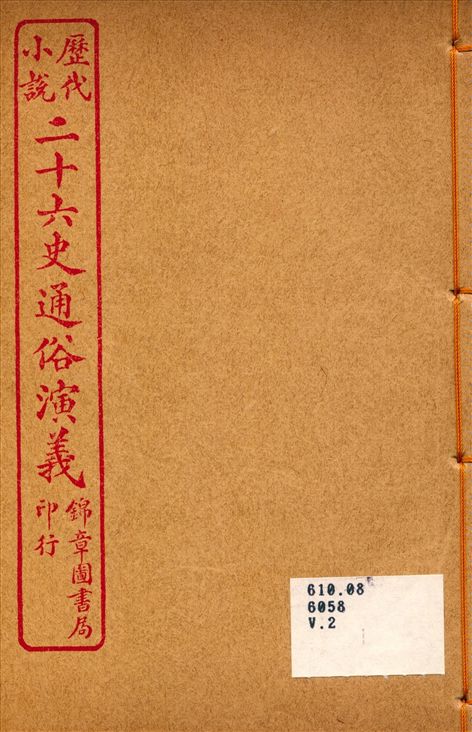 歷代
小說
二十六史通俗演義
錦章圖書局
印行
610.08
6058
V.2